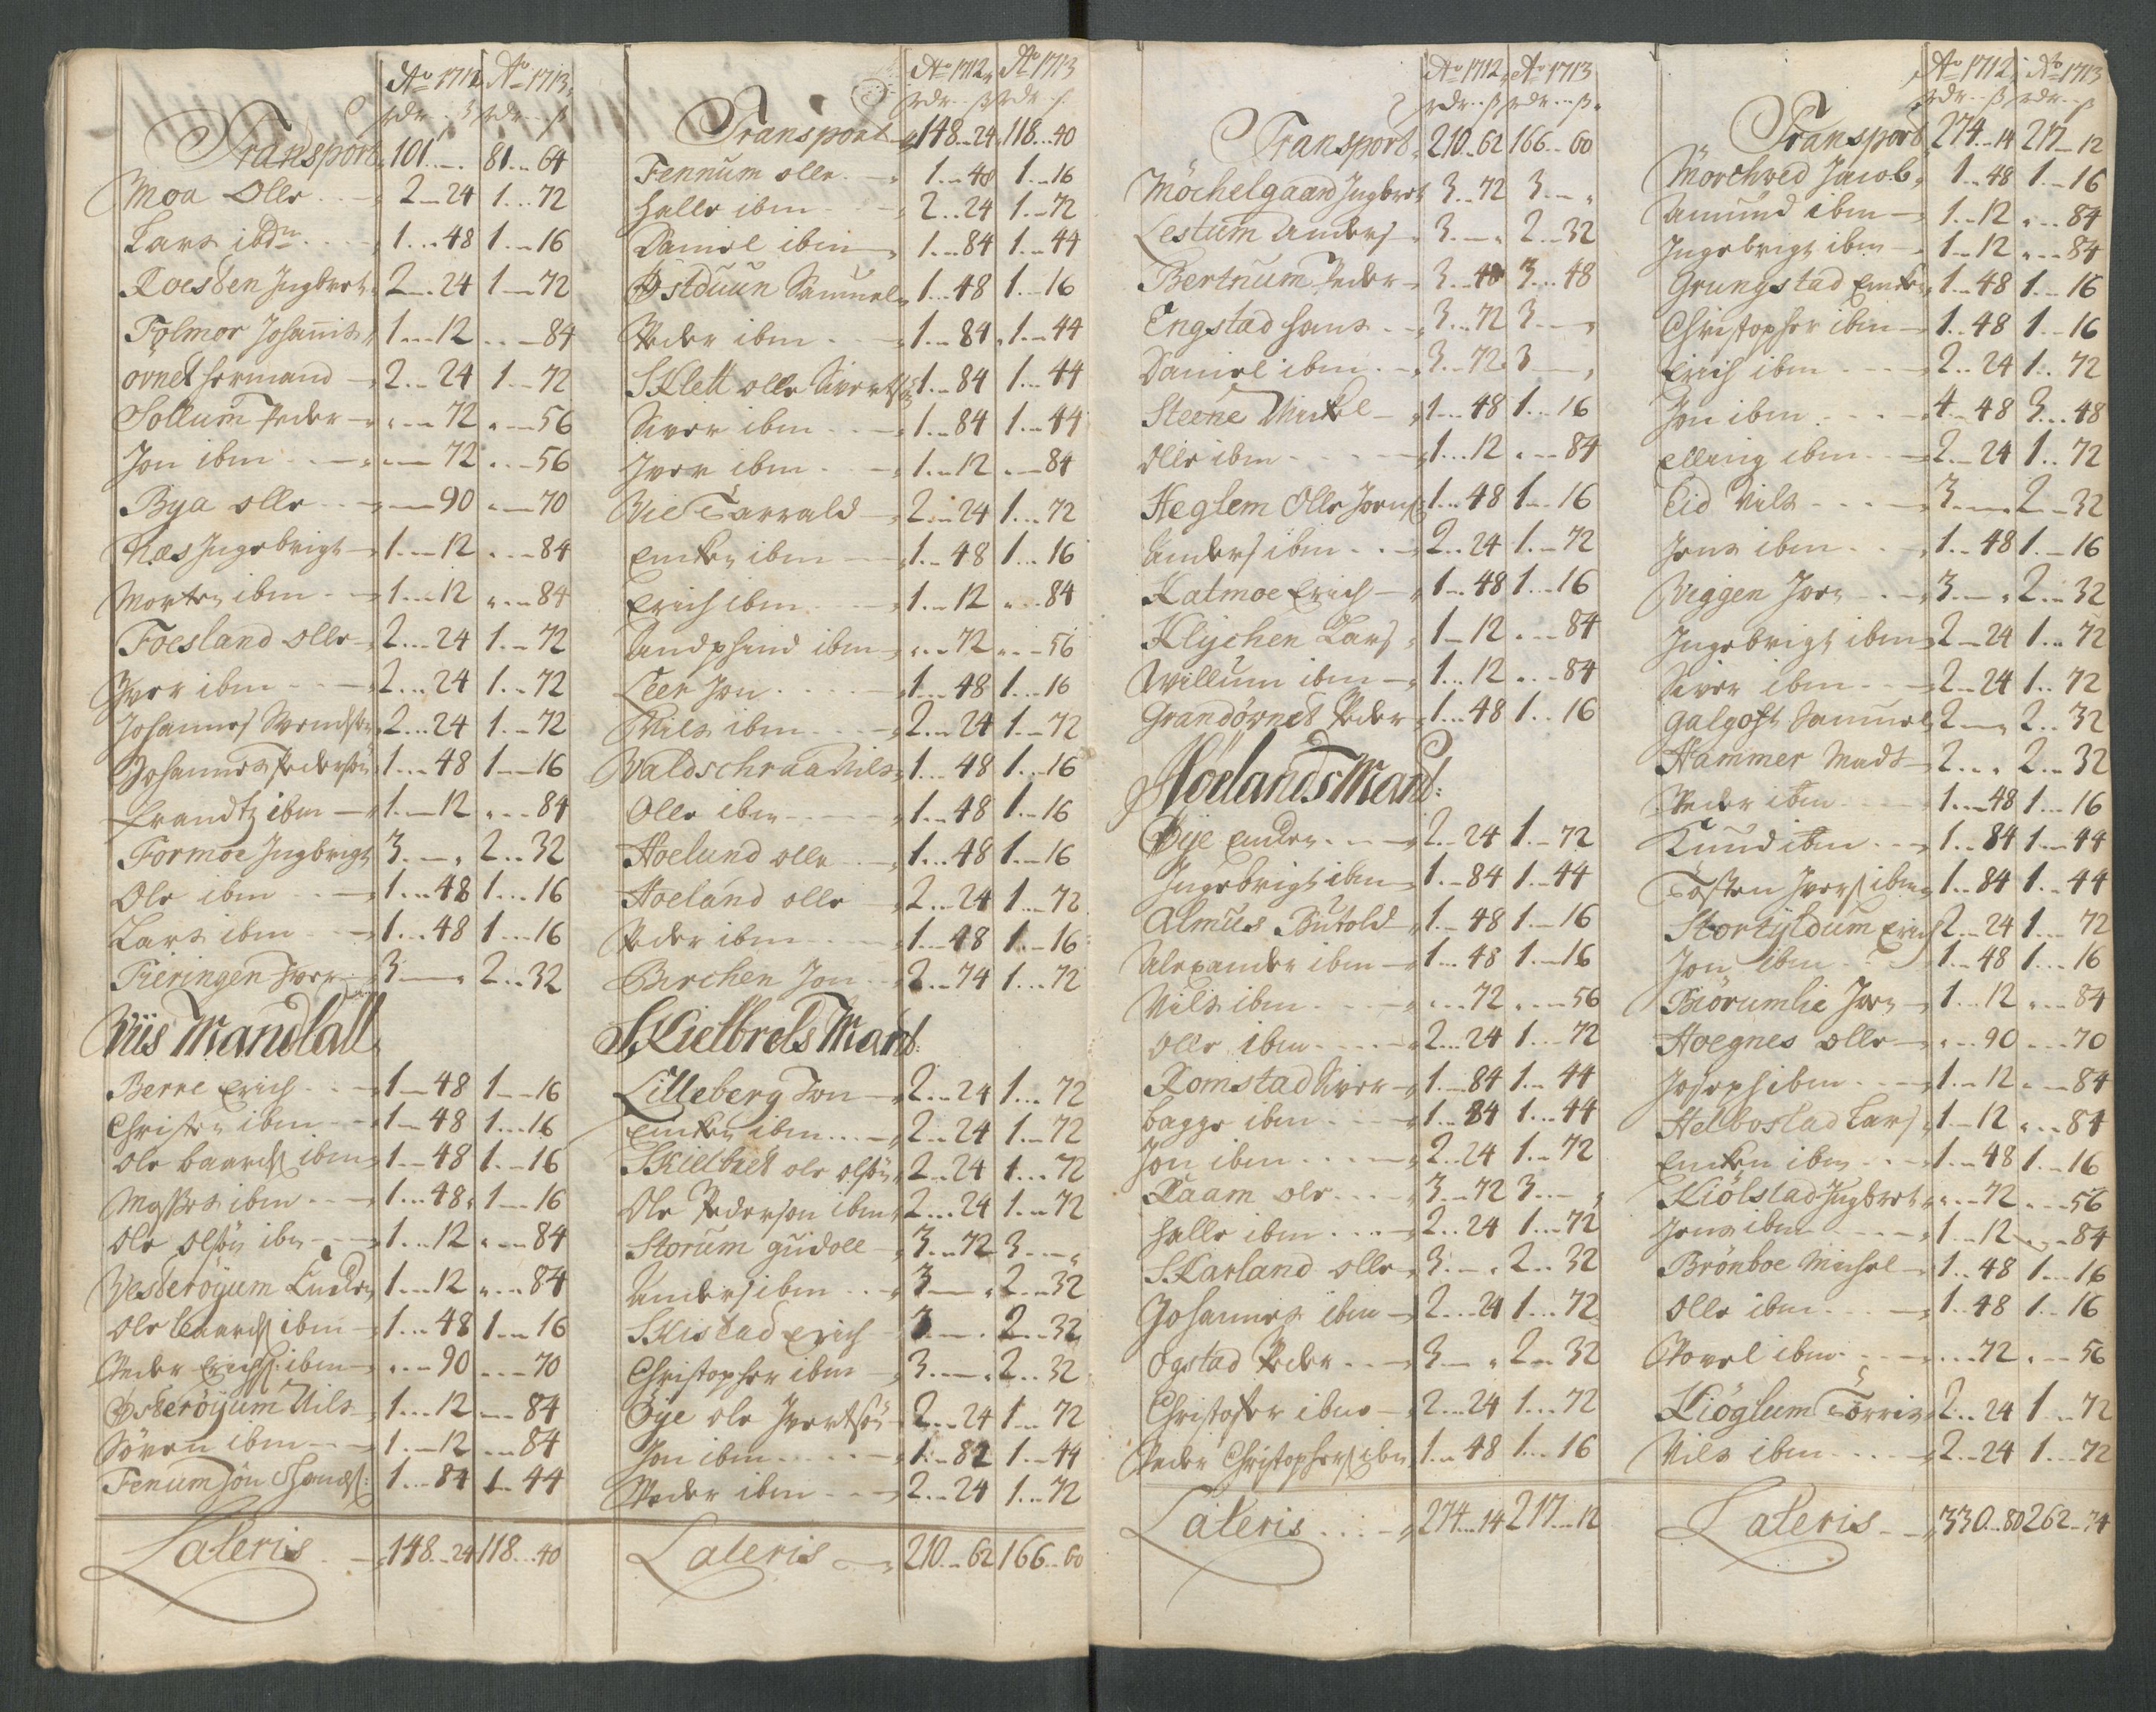 Ao 1712 Ao 1713
rdr .. ß rdr .. ß
Transport 101 .. – 81 .. 64
Moa Olle 2 .. 24 1 .. 72
Lars ibdm 1 .. 48 1 .. 16
Roesten Ingbret 2 .. 24 1 .. 72
Folmor Johannis 1 .. 12 .. 84
ovnet Hermand 2 .. 24 1 .. 72
Sollum Peder .. 72 .. 56
Jon ibm .. 72 .. 56
Bya olle .. 90 .. 70
Næs Ingebrigt 1 .. 12 .. 84
Morten ibm 1 .. 12 .. 84
Foesland olle 2 .. 24 1 .. 72
Iver ibm 2 .. 24 1 .. 72
Johannes Svendsen 2 .. 24 1 .. 72
Johannes Pedersøn 1 .. 48 1 .. 16
Frandtz ibm 1 .. 12 .. 84
Formoe Ingbrigt 3 .. – 2 .. 32
Ole ibm 1 .. 48 1 .. 16
Lars ibm 1 .. 48 1 .. 16
Fieringen Iver 3 .. – 2 .. 32
Viis Mandtall
Berre Erich 1 .. 48 1 .. 16
Christen ibm 1 .. 48 1 .. 16
Ole baards ibm 1 .. 48 1 .. 16
ibm 1 .. 48 1 .. 16
Ole Olsøn ibm 1 .. 12 .. 84
Vesterøyum Endre 1 .. 12 .. 84
Ole baards ibm 1 .. 48 1 .. 16
Peder Erichs. ibm .. 90 .. 70
Østerøyum Nils 1 .. 12 .. 84
Søren ibm 1 .. 12 .. 84
Fenum Jon 1 .. 84 1 .. 44
Lateris 148 .. 24 118 .. 40
Ao 1712 Ao 1713
rdr .. ß rdr .. ß
Transport 148 .. 24 118 .. 40
Fennum olle 1 .. 48 1 .. 16
Halle ibm 2 .. 24 1 .. 72
Daniel ibm 1 .. 84 1 .. 44
Østduun Samuel 1 .. 48 1 .. 16
Peder ibm 1 .. 84 1 .. 44
SKlett olle Sivertsøn 1 .. 84 1 .. 44
Siver ibm 1 .. 84 1 .. 44
Iver ibm 1 .. 12 .. 84
Vie Tarrald 2 .. 24 1 .. 72
Encken ibm 1 .. 48 1 .. 16
Erich ibm 1 .. 12 .. 84
Andphind ibm .. 72 .. 56
Leer Jon 1 .. 48 1 .. 16
Nils ibm 2 .. 24 1 .. 72
Valdschraa Nils 1 .. 48 1 .. 16
Olle ibm 1 .. 48 1 .. 16
Hoelund olle 1 .. 48 1 .. 16
Hoeland olle 2 .. 24 1 .. 72
Peder ibm 1 .. 48 1 .. 16
Birchen Jon 2 .. 74 1 .. 72
SKielbrets Mand:
Lilleberg Ton 2 .. 24 1 .. 72
Encken ibm 2 .. 24 1 .. 72
SKielbret ole olsøn 2 .. 24 1 .. 72
Ole Pedersøn ibm 2 .. 24 1 .. 72
Storum gudoll 3 .. 72 3 .. –
Anders ibm 3 .. – 2 .. 32
SKistad Erich 3 .. – 2 .. 32
Christopher ibm 3 .. – 2 .. 32
Øye ole Ivertsøn 2 .. 24 1 .. 72
Jon ibm 1 .. 82 1 .. 44
Peder ibm 2 .. 24 1 .. 72
Lateris 210 .. 62 166 .. 60
Ao 1712 Ao 1713
rdr .. ß rdr .. ß
Transport 210 .. 62 166 .. 60
Møchelgaard Ingbret 3 .. 72 3 .. –
Lestum Anders 3 .. – 2 .. 32
Bertnum Peder 3 .. 48 3 .. 48
Engstad Hans 3 .. 72 3 .. –
Daniel ibm 3 .. 72 3 .. –
Steene Mickel 1 .. 48 1 .. 16
Olle ibm 1 .. 12 .. 84
Heglem Olle Jorns 1 .. 48 1 .. 16
Anders ibm 2 .. 24 1 .. 72
Katmoe Erich 1 .. 48 1 .. 16
Klychen Lars 1 .. 12 .. 84
Willum ibm 1 .. 12 .. 84
Grandørnet Peder 1 .. 48 1 .. 16
Høelands Mand:
Øye Endre 2 .. 24 1 .. 72
Ingebrigt ibm 1 .. 84 1 .. 44
Almus Butold 1 .. 48 1 .. 16
Alexander ibm 1 .. 48 1 .. 16
Nils ibm .. 72 .. 56
Olle ibm 2 .. 24 1 .. 72
Romstad Siver 1 .. 84 1 .. 44
bagge ibm 1 .. 84 1 .. 44
Jon ibm 2 .. 24 1 .. 72
Raam ole 3 .. 72 3 .. –
Halle ibm 2 .. 24 1 .. 72
SKarland olle 3 .. – 2 .. 32
Johannes ibm 2 .. 24 1 .. 72
Ogstad Peder 3 .. – 2 .. 32
Christoffer ibm 2 .. 24 1 .. 72
Peder Christophers ibm 1 .. 48 1 .. 16
Lateris 274 .. 14 217 .. 12
Ao 1712 Ao 1713
rdr .. ß rdr .. ß
Transport 274 .. 14 217 .. 12
Mørchved Jacob 1 .. 48 1 .. 16
Amund ibm 1 .. 12 .. 84
Ingebrigt ibm 1 .. 12 .. 84
Grungstad Encken 1 .. 48 1 .. 16
Christopher ibm 1 .. 48 1 .. 16
Erich ibm 2 .. 24 1 .. 72
Jon ibm 4 .. 48 3 .. 48
Elling ibm 2 .. 24 1 .. 72
Eid Nils 3 .. – 2 .. 32
Jens ibm 1 .. 48 1 .. 16
Veggen Joen 3 .. – 2 .. 32
Ingebrigt ibm 2 .. 24 1 .. 72
Siver ibm 2 .. 24 1 .. 72
Galgoft Samuel 2 .. – 2 .. 32
Hammer Mads 2 .. – 2 .. 32
Peder ibm 1 .. 48 1 .. 16
Knud ibm 1 .. 84 1 .. 44
Tosten Ivers ibm 1 .. 84 1 .. 44
Stortyldum Erich 2 .. 24 1 .. 72
Jon ibm 1 .. 48 1 .. 16
Biørumlie Joen 1 .. 12 .. 84
Hoegnes olle .. 90 .. 70
Joseph ibm 1 .. 12 .. 84
Helbostad Lars 1 .. 12 .. 84
Encken ibm 1 .. 48 1 .. 16
Kiølstad Ingbret .. 72 .. 56
Jens ibm 1 .. 12 .. 84
Brønboe Michel 1 .. 48 1 .. 16
Olle ibm 1 .. 48 1 .. 16
Povel ibm .. 72 .. 56
Kiøglum Torris 2 .. 24 1 .. 72
Nils ibm 2 .. 24 1 .. 72
Lateris 330 .. 80 262 .. 74